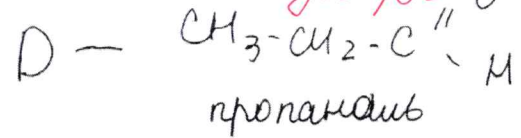 D — CH₃-CH₂-C
H
пропаналь